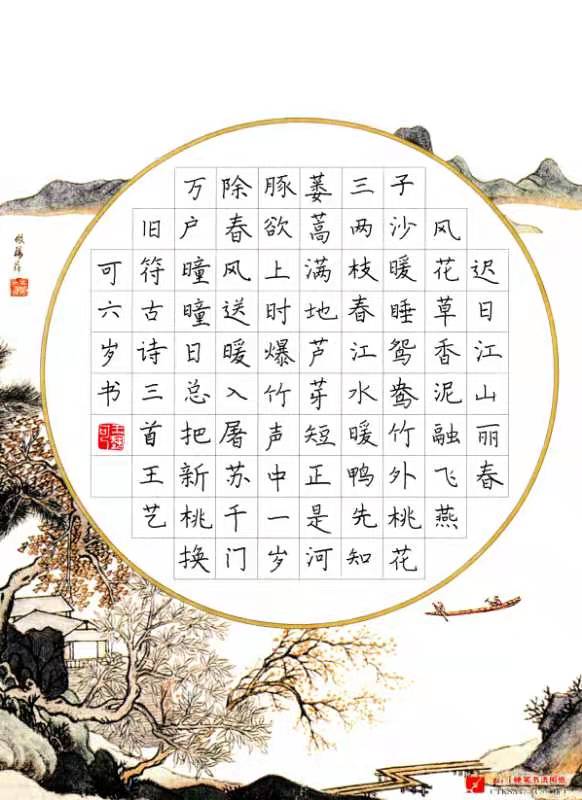 迟日江山丽春
风花草香泥融飞燕
子沙暖睡鸳鸯竹外桃花
三两枝春江水暖鸭先知
蒌蒿满地芦芽短正是河
豚欲上时爆竹声中一岁
除春风送暖入屠苏千门
万户曈曈日总把新桃换
旧符古诗三首王艺
可六岁书